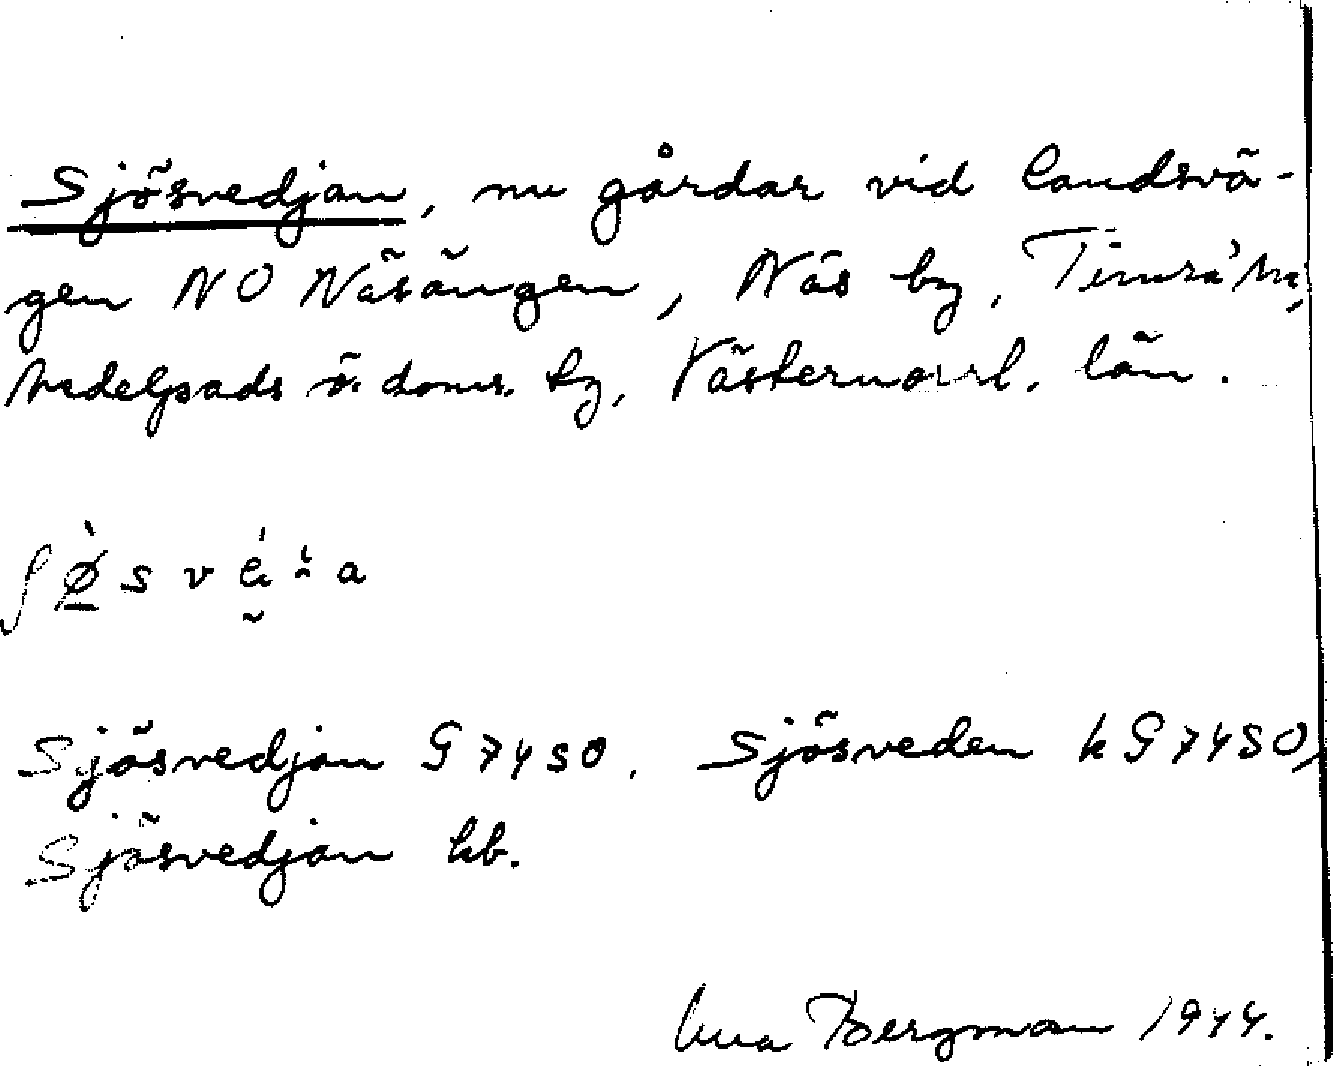 Sjösvedjan, nu gårdar vid landsvä-
gen NO Näsängen, Näs by, Timrå
Medelpads ö. doms. tg, Västernorrl. län.
Sjösvedjan G 7450. Sjösveden k G 7450,
Sjösvedjan kb.
Bergman 1944.